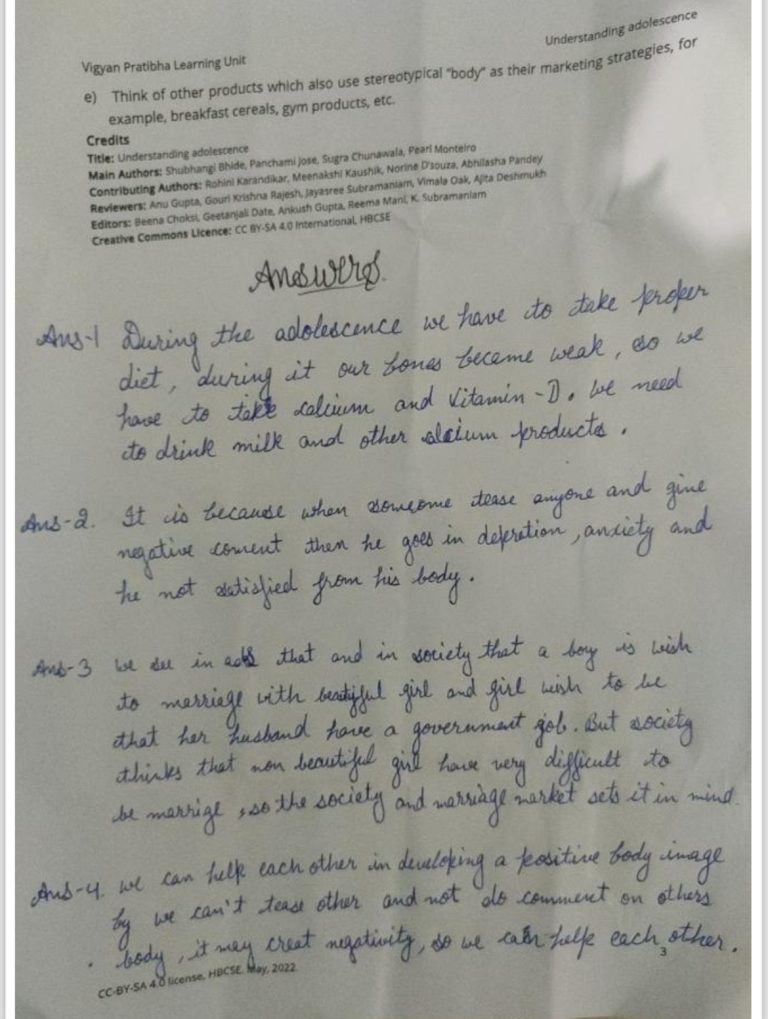 Vigyan Pratibha Learning Unit
Understanding adolescence
e) Think of other products which also use stereotypical "body" as their marketing strategies, for
example, breakfast cereals, gym products, etc.
Credits
Title: Understanding adolescence
Main Authors: Shubhangi Bhide, Panchami Jose, Sugra Chunawala, Pearl Monteiro
Contributing Authors: Rohini Karandikar, Meenakshi Kaushik, Norine D'souza, Abhilasha Pandey
Reviewers: Anu Gupta, Gouri Krishna Rajesh, Jayasree Subramaniam, Vimala Oak, Ajita Deshmukh
Editors: Beena Choksi, Geetanjali Date, Ankush Gupta, Reema Mani, K. Subramaniam
Creative Commons Licence: CC BY-SA 4.0 International, HBCSE
Answers
Ans-1 During the adolescence we have to take proper
diet, during it our bones became weak, so we
have to take calcium and Vitamin-D. We need
to drink milk and other alcium products.
Ans-2. It is because when someome tease anyone and give
negative coment then he goes in depration, anxiety and
he not satisfied from his body.
Ans-3 We see in ads that and in society that a boy is wish
to marriage with beatiful girl and girl wish to be
that her husband have a government job. But society
thinks that non beautiful girl have very difficult to
be marrige, so the society and marriage market sets it in mind.
Ans-4. We can help each other in developing a positive body image
by we can't tease other and not do comment on others
body, it may creat negativity, so we can help each other.
3
CC-BY-SA 4.0 license, HBCSE. May, 2022